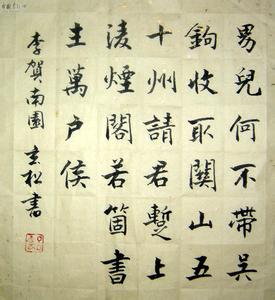 男兒何不帶吳
鉤收取關山五
十州請君暫上
凌煙閣若箇書
生萬户侯
李賀南園 玄松書